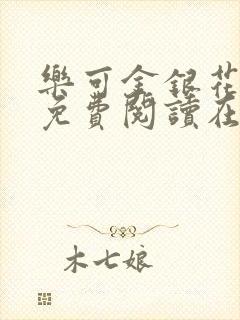 樂可金銀花
免費閱讀在
木七娘